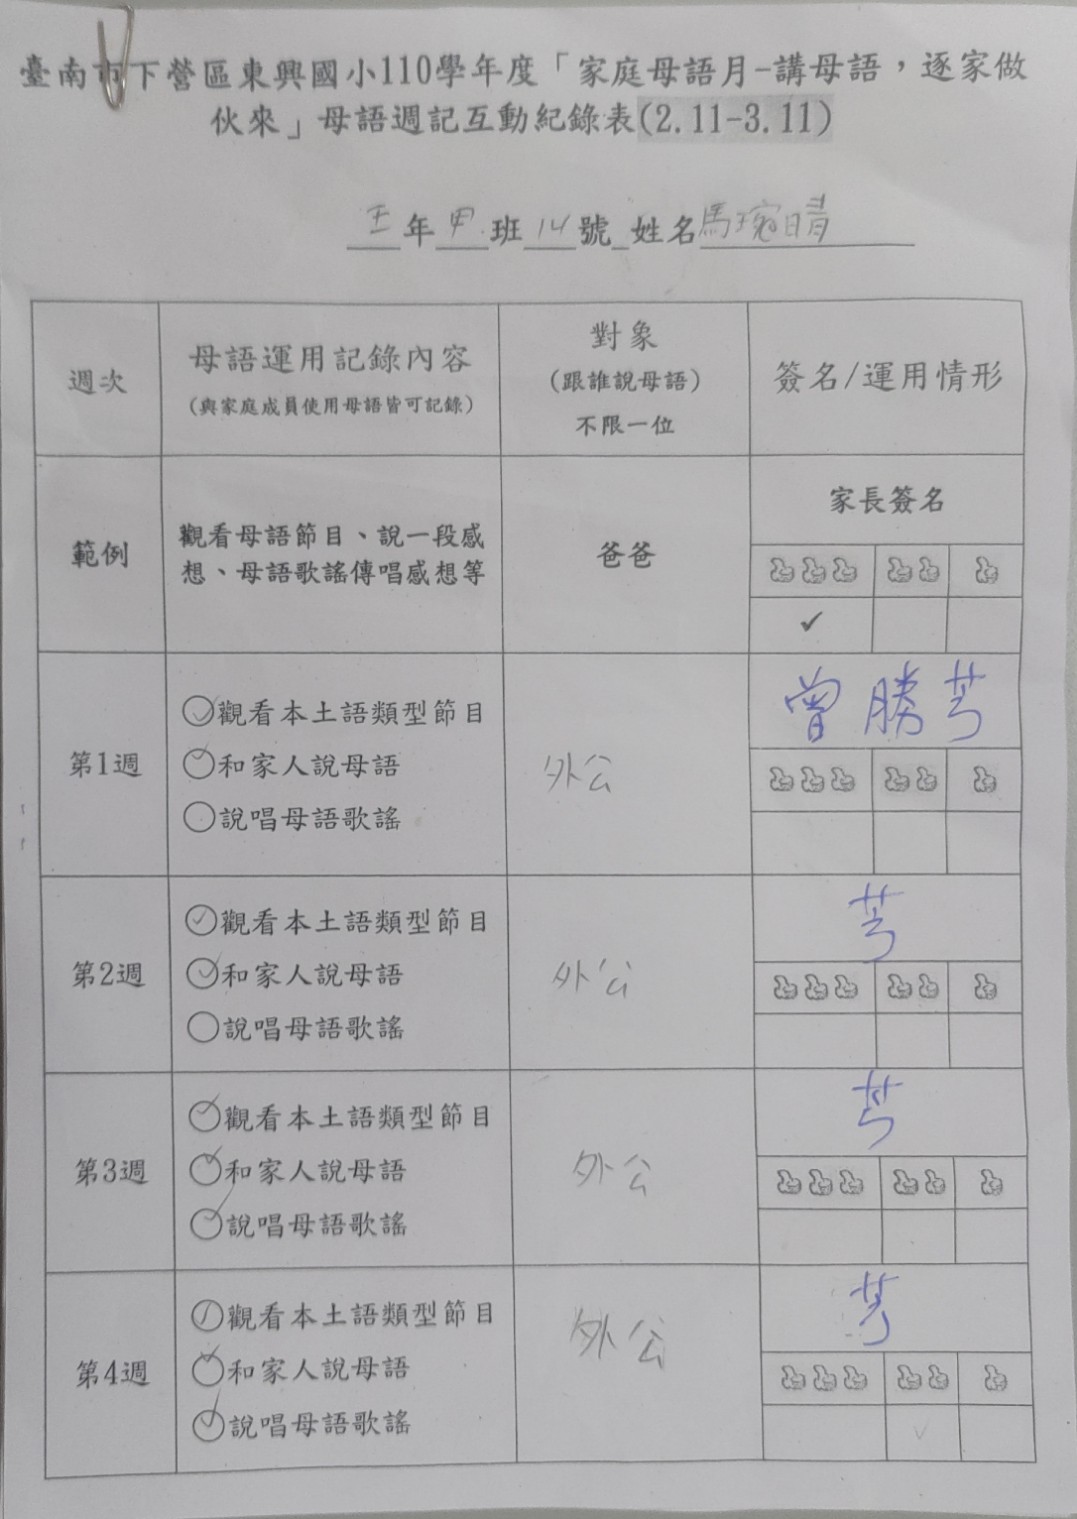 臺南市下營區東興國小110學年度「家庭母語月-講母語，逐家做
伙來」母語週記互動紀錄表(2.11-3.11)
五年甲班14號 姓名馬琬晴
週次
母語運用記錄內容
(與家庭成員使用母語皆可記錄)
對象
(跟誰說母語)
不限一位
簽名/運用情形
範例
觀看母語節目、說一段感
想、母語歌謠傳唱感想等
爸爸
家長簽名
✓
第1週
觀看本土語類型節目
和家人說母語
說唱母語歌謠
外公
曾勝芳
第2週
觀看本土語類型節目
和家人說母語
說唱母語歌謠
外公
芳
第3週
觀看本土語類型節目
和家人說母語
說唱母語歌謠
外公
芳
第4週
觀看本土語類型節目
和家人說母語
說唱母語歌謠
外公
芳